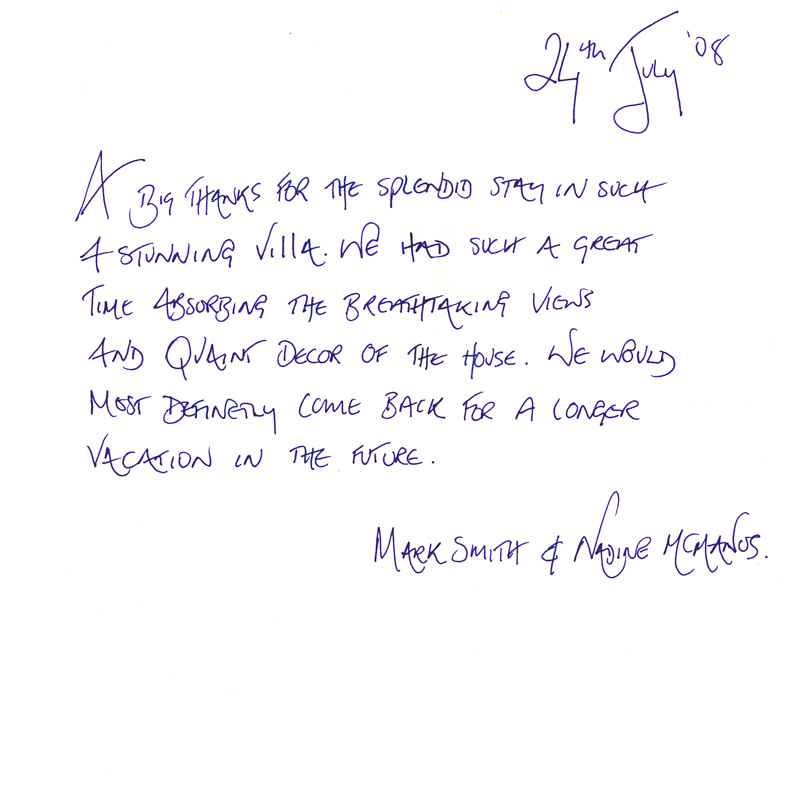 24th July '08
A BIG THANKS FOR THE SPLENDID STAY IN SUCH
A STUNNING VillA. WE HAD SUCH A GREAT
TIME ABSORBING THE BREATHTAKING VIEWS
AND QUAINT DECOR OF THE HOUSE. WE WOULD
MOST DEFINETLY COME BACK FOR A LONGER
VACATION IN THE FUTURE.
MARK SMITH & NADINE MCMANUS.